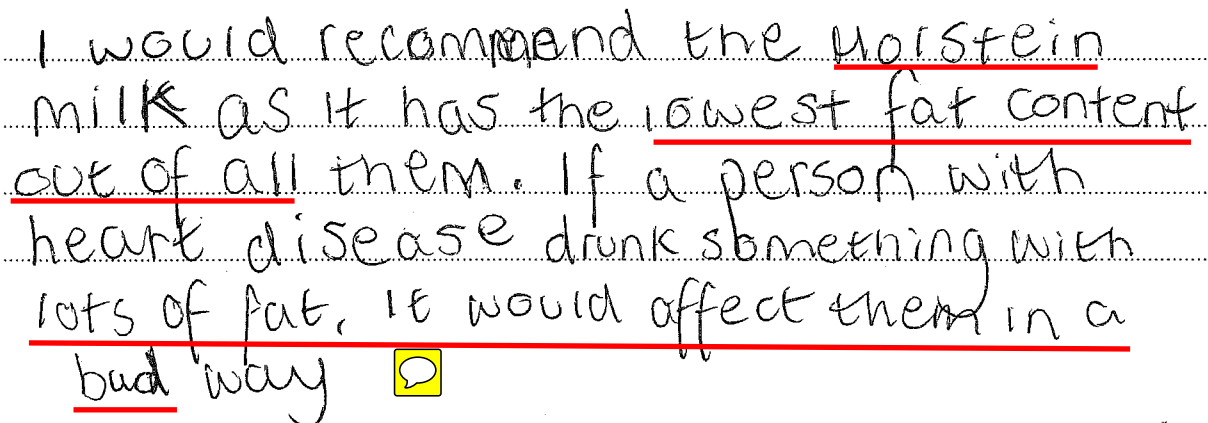 I would recommend the Holstein
milk as it has the lowest fat content
out of all them. If a person with
heart disease drunk something with
lots of fat, it would affect them in a
bad way